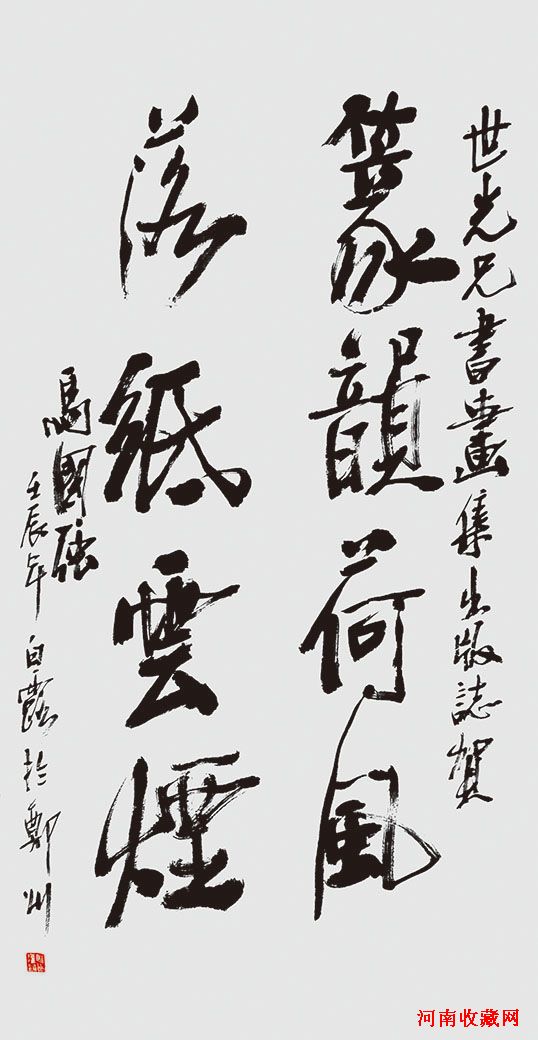 世光兄書畫集出版誌賀
篆韻荷風
落紙雲煙
馮國強
壬辰年白露於鄭州
河南收藏网